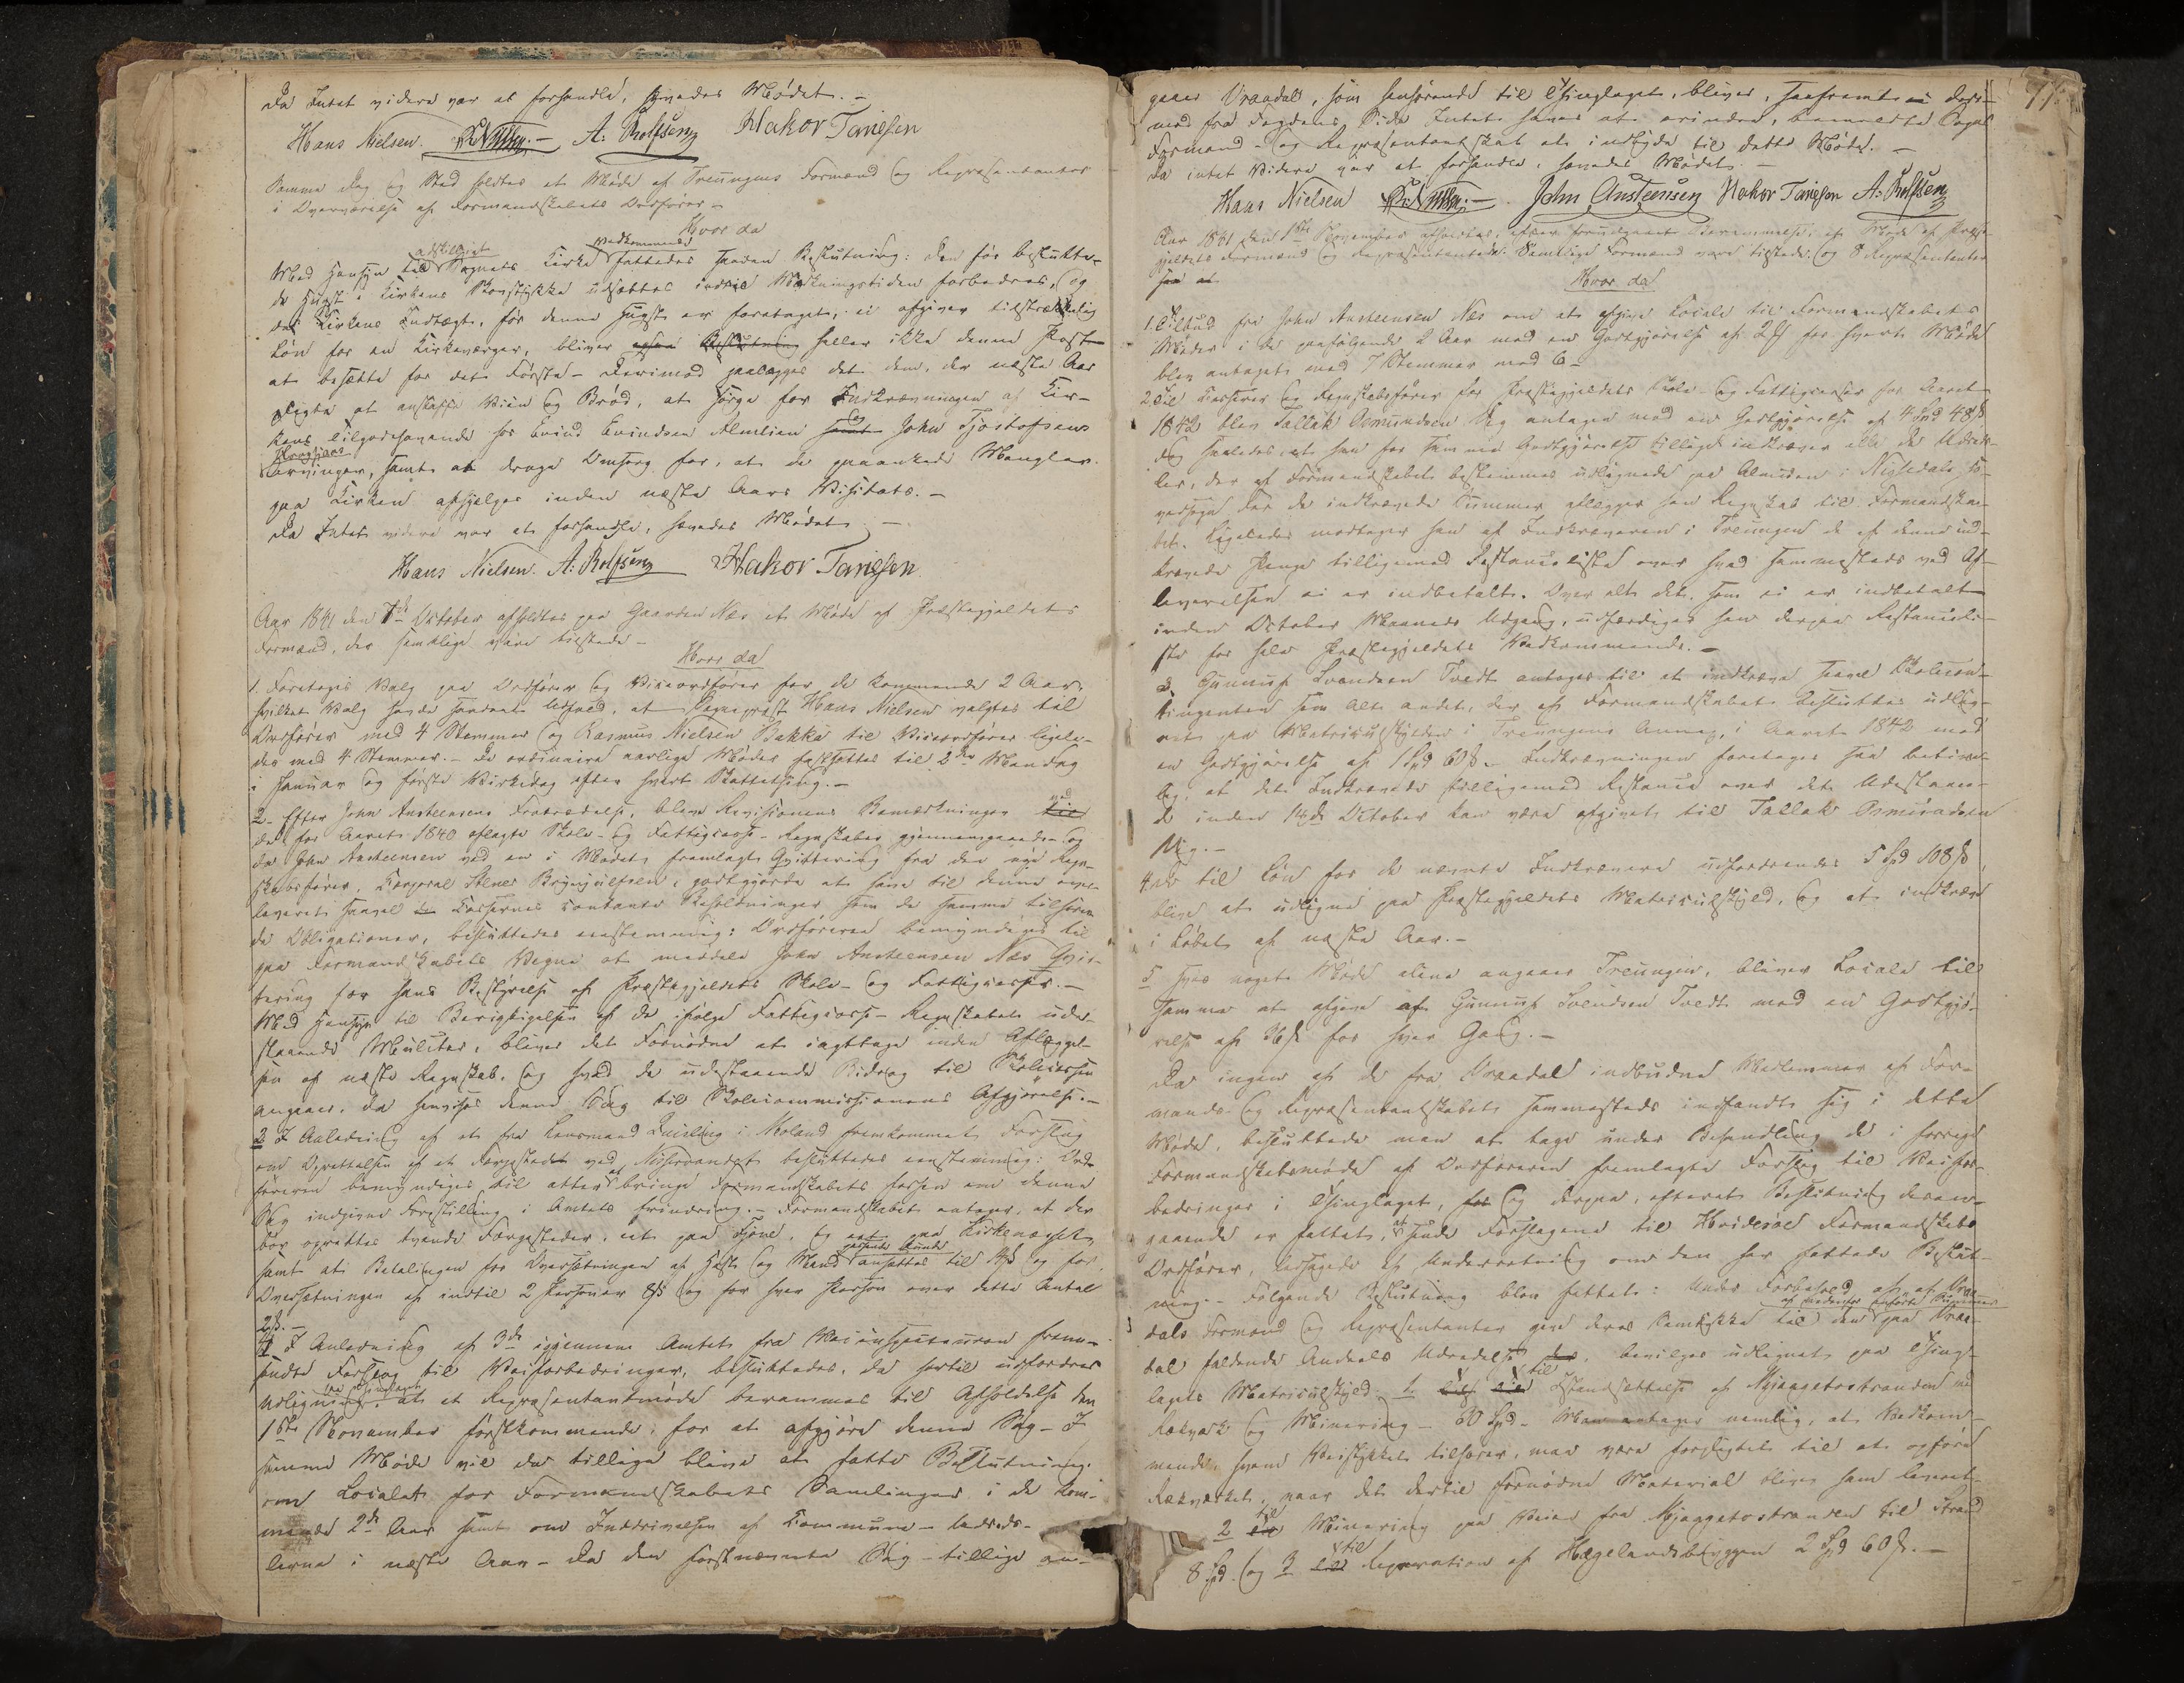 Da Intet videre var at forhandle, hævedes Mødet. –
Hans Nielsen. RNielsen. – A: Rolfsen Hakor Tarjesen
Samme Dag og Sted holdtes et Møde af Treungens Formænd og Repræsentanter
i Overværelse af Formandskabets Ordfører –
Hvor da
adskilligt vedkommende
Med Hensyn til Sognets Kirke fattedes saadan Beslutning: Den før besluttede
da Kirkens Indtægt, før denne er foretaget, ei afgiver tilstrækkelig
Løn for en Kirkeværger, bliver heller ikke denne Post
at besætte for det Første – Derimod paalægges det dem, der næste Aar
at anskaffe Viin og Brød, at sørge for Indkrævningen af Kir-
kens Tilgodehavende hos Evind Evindsen Almlien samt og John Tjostofsens
Kragtians
Arvinger, samt at drage Omsorg for, at de paaankede Mangler
paa Kirken afhjelpes inden næste Aars Visitats. –
Da Intet videre var at forhandle, hævedes Mødet. –
Hans Nielsen. A: Rolfsen Hakor Tarjesen
Aar 1841 den 7de October afholdtes paa Gaarden Næs et Møde af Præstegjeldets
Formænd, der samtlige vare tilstede –
Hvor da
1. Foretoges Valg paa Ordfører og Viceordfører for de kommende 2 Aar,
hvilket Valg havde saadant Udfald, at Sognepræst Hans Nielsen valgtes til
Ordfører med 4 Stemmer og Rasmus Nielsen Bakka til Viceordfører ligele-
des med 4 Stemmer. – De ordinaire aarlige Møder fastsættes til 2den Mandag
i Januar og første Virkedag efter hvert Skattething. –
2. Efter John Austeensens Fratrædelse, bleve Revisionens Bemærkninger til ved
de for Aaret 1840 aflagte Skole- og Fattigcasse-Regnskaber gjennemgaaede – og
da John Austeensen ved en i Mødet fremlagt Qvittering fra den nye Regn-
skabsfører, Corporal Stener Brynjulfsen, godtgjorde at have til denne over-
leveret saavel Cassernes contante Beholdninger som de samme tilhøren-
de Obligationer, besluttedes eenstemmig: Ordføreren bemyndiges til
paa Formandskabets Vegne at meddele John Austeensen Næs Qvit-
tering for hans Bestyrelse af Præstegjeldets Skole- og Fattigcasser. –
Med Hensyn til Berigtigelsen af de ifølge Fattigcasse-Regnskabet ude-
staaende Mulcter, bliver det Fornødne at iagttage inden Aflæggel-
sen af næste Regnskab, og hvad de udestaaende Bidrag til Skolecassen
angaaer, da henvises denne Sag til Skolecommissionens Afgjørelse. –
3 I Anledning af et fra Lensmand Quisling i Moland fremkommet Forslag
om Oprettelsen af et Færgested ved Nisservandet besluttedes eenstemmig: Ord-
føreren bemyndiges til atter at bringe Formandskabets forhen om denne
Sag indgivne Forestilling i Amtets Erindring. – Formandskabet antager, at der
bør oprettes tvende Færgesteder, et paa Fjone, og et paa Kirkenæset,
samt at Betalingen for Oversætningen af Hest og Mand ansættes til og for
Oversætningen af indtil 2 Personer 8ß og for hver Person over dette Antal
2ß. –
4 I Anledning af 3de igjennem Amtet fra Veiinspecteuren frem-
sendte Forslag til Veiforbedringer, besluttedes, da hertil udfordres
Udligning, at et Repræsentantmøde berammes til Afholdelse den
1ste November førstkommende, for at afgjøre denne Sag – I
samme Møde vil da tillige blive at fatte Beslutning
om Localet for Formandskabets Samlinger i de kom-
mende 2de Aar samt om Inddrivelsen af Commune-Udreds-
lerne i næste Aar – Da den førstnævnte Sag tillige an-
77.
gaaer Vraadal, som henhørende til Thinglaget, bliver, saafremt
mod fra Fogdens Side Intet haves at erindre, bemeldte Sogns
Formand- og Repræsentantskab at indbyde til dette Møde. –
Da intet Videre var at forhandle, hævedes Mødet. –
Hans Nielsen RNielsen. – John Austeensen Hakor Tarjesen A: Rolfsen
Aar 1841 den 1ste November afholdtes, efter forudgaaet Berammelse, et Møde af Præste-
gjeldets Formænd og Repræsentanter. Samtlige Formænd vare tilstede, og 8 Repræsentanter
Hvor da
1. Tilbud fra John Austeensen Næs om at afgive Locale til Formandskabets
Møder i de paafølgende 2 Aar mod en Godtgjørelse af for hvert Møde
blev antaget med 7 Stemmer mod 6 –
2. Til Casserer og Regnskabsfører for Præstegjeldets Skole- og Fattigcasser for Aaret
1842 blev Tallak Osmundsen Mig antagen mod en Godtgjørelse af 4 Spd 48ß
dog saaledes at han for samme Godtgjørelse tillige indkræver alle de Udreds-
ler, der af Formandskabet bestemmes udlignede paa Almuen i Nissedals Ho-
vedsogn. For de indkrævede Summer aflægger han Regnskab til Formandska-
bet. Ligeledes modtager han af Indkræveren i Treungen de af denne ind-
krævede Penge tilligemed Restanceliste over hvad sammesteds ved Af-
leverelsen ei er indbetalt. Over alt det, som ei er indbetalt
inden October Maaneds Udgang, udfærdiges han derpaa Restanceli-
ste for hele Præstegjeldets Vedkommende. –
3. Gunnuf Svendsen Tvedt antages til at indkræve saavel Skolecon-
tingenten som alt andet, der af Formandskabet besluttes udlig-
net paa Matriculskylden i Treungens Annex, i Aaret 1842 mod
en Godtgjørelse af 1 Spd 60ß. Indkrævningen foretages saa betime-
lig, at det Indkrævede tilligemed Restance over det Udestaaen-
de inden 14de October kan være afgivet til Tallak Osmundsen
Mig. –
4. De til Løn for de nævnte Indkrævere udfordrende 5 Spd 108ß,
blive at udligne paa Præstegjeldets Matriculskyld, og at indkræve
i Løbet af næste Aar. –
5 Hvis noget Møde alene angaaer Treungen, bliver Locale til
samme at afgive af Gunnuf Svendsen Tvedt mod en Godtgjø-
relse af 36ß for hver Gang. –
Da ingen af de fra Vraadal indbudne Medlemmer af For-
mands- og Repræsentantskabet sammesteds indfandt sig i dette
Møde, besluttede man at tage under Behandling de i forrige
Formandskabsmøde af Ordføreren fremlagte Forslag til Veifor-
bedringer i Thinglaget, og derpaa, efterat Beslutning derom-
gaaende er fattet, at sende Forslagene til Hvidesøe Formandskabs
Ordfører, ledsaget af Underretning om den her fattede Beslut-
ning. – Følgende Beslutning blev fattet: Under Forbehold af, at Vraa-
af nedenfor anførte Summer
dals Formænd og Repræsentanter give deres Samtykke til den paa Vraa-
dal faldende Andeels Udredelse, bevilges udlignet paa Thing-
lagets Matriculskyld. 1. til Istandsættelse af Njaagetostranden ved
Rækværk og Minering – 30 Spd – Man antager nemlig, at Vedkom-
mende, hvem Veistykket tilhører, maa være forpligtet til at opføre
Rækværket, naar det dertil fornødne Material bliver ham leveret.
2 til Minering paa Veien fra Njaagetostranden til Strand
8 Spd. og 3 til Reparation af Hægelandsbryggen 2 Spd 60ß. –